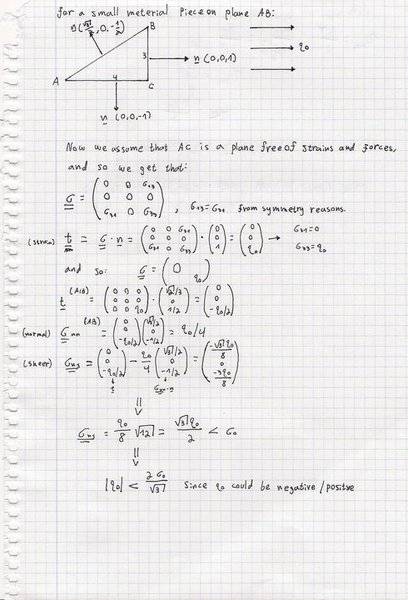 for a small meterial Piece on plane AB:
n(√3/2, 0, -1/2)
B
3
n (0,0,1)
q₀
A
4
C
n (0,0,-1)
Now we assume that AC is a plane free of strains and forces,
and so we get that:
σ = (0 0 σ₁₃; 0 0 0; σ₃₁ 0 σ₃₃) , σ₁₃=σ₃₁ from symmetry reasons.
t = σ · n = (0 0 σ₃₁; 0 0 0; σ₃₁ 0 σ₃₃) · (0; 0; 1) = (0; 0; q₀) → σ₃₁=0
σ₃₃=q₀
and so: σ = (0 q₀)
t^(AB) = (0 0 0; 0 0 0; 0 0 q₀) · (√3/2; 0; -1/2) = (0; 0; -q₀/2)
(normal) σnn^(AB) = (0; 0; -q₀/2) (√3/2; 0; -1/2) = q₀/4
(sheer) σns = (0; 0; -q₀/2) - q₀/4 (√3/2; 0; -1/2) = (-√3q₀/8; 0; -3q₀/8)
t
σnn·n
⇓
σns = q₀/8 √12 = √3 q₀/2 < σ₀
⇓
|q₀| < 2σ₀/√3 since q₀ could be negative/positive